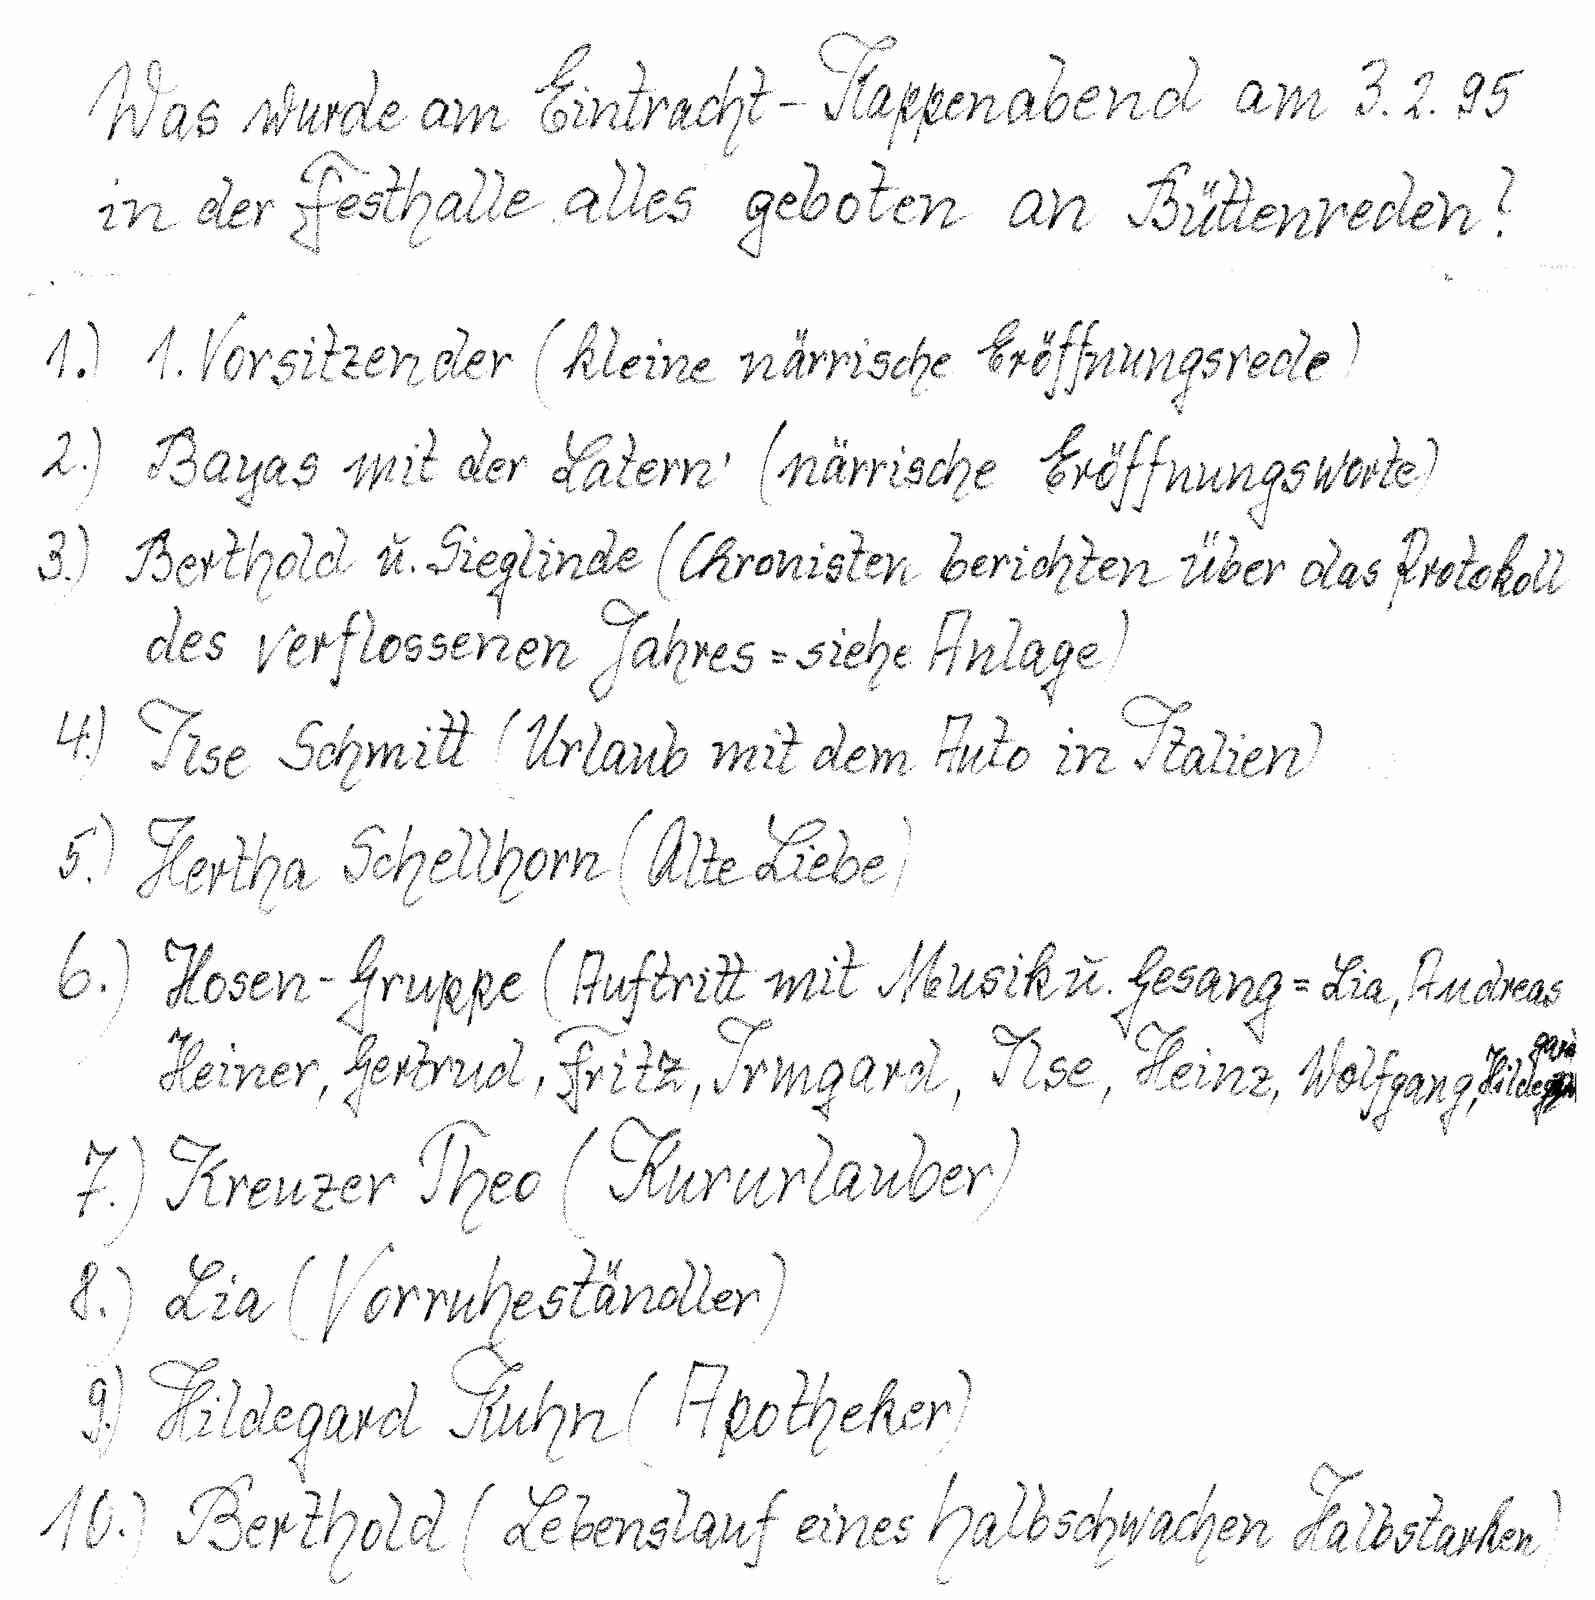 Was wurde am Eintracht-Kappenabend am 3.2.95
in der Festhalle alles geboten an Büttenreden?
1.) 1. Vorsitzender (kleine närrische Eröffnungsrede)
2.) Bayas mit der Latern' (närrische Eröffnungsworte)
3.) Berthold u. Sieglinde (Chronisten berichten über das Protokoll
des verflossenen Jahres = siehe Anlage)
4.) Ilse Schmitt (Urlaub mit dem Auto in Italien)
5.) Hertha Schellhorn (Alte Liebe)
6.) Hosen-Gruppe (Auftritt mit Musik u. Gesang = Lia, Andreas
Heiner, Gertrud, Fritz, Irmgard, Ilse, Heinz, Wolfgang, Hildegard
7.) Kreuzer Theo (Kururlauber)
8.) Lia (Vorruheständler)
9.) Hildegard Kuhn (Apotheker)
10.) Berthold (Lebenslauf eines halbschwachen Halbstarken)